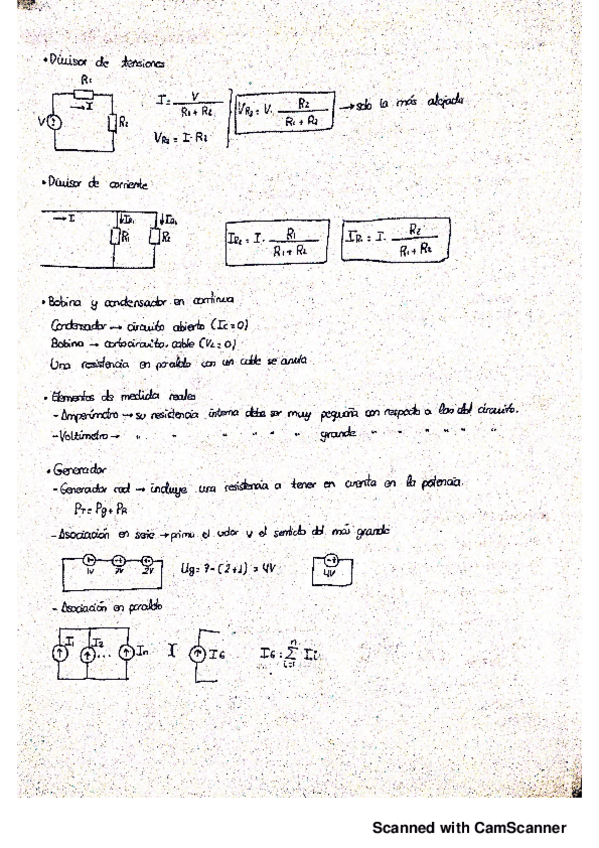 • Divisor de tensiones
R1
I
V
R2
I = V / (R1 + R2)
VR2 = I · R2
VR2 = V · R2 / (R1 + R2) → solo la más alejada
• Divisor de corriente
→ I ↓IR1 ↓IR2
R1 R2
IR2 = I · R1 / (R1 + R2)
IR1 = I · R2 / (R1 + R2)
• Bobina y condensador en continua
Condensador → circuito abierto (Ic = 0)
Bobina → cortocircuito, cable (VL = 0)
Una resistencia en paralelo con un cable se anula
• Elementos de medida reales
- Amperímetro → su resistencia interna debe ser muy pequeña con respecto a las del circuito.
- Voltímetro → " " " " " " grande " " " " "
• Generador
- Generador real → incluye una resistencia a tener en cuenta en la potencia.
PT = Pg + PR
- Asociación en serie → prima el valor y el sentido del más grande
1V 7V 2V
Ug = 7 - (2+1) = 4V
4V
- Asociación en paralelo
I1 I2 ... In
IG
IG = Σ Ii
n
i=1
Scanned with CamScanner